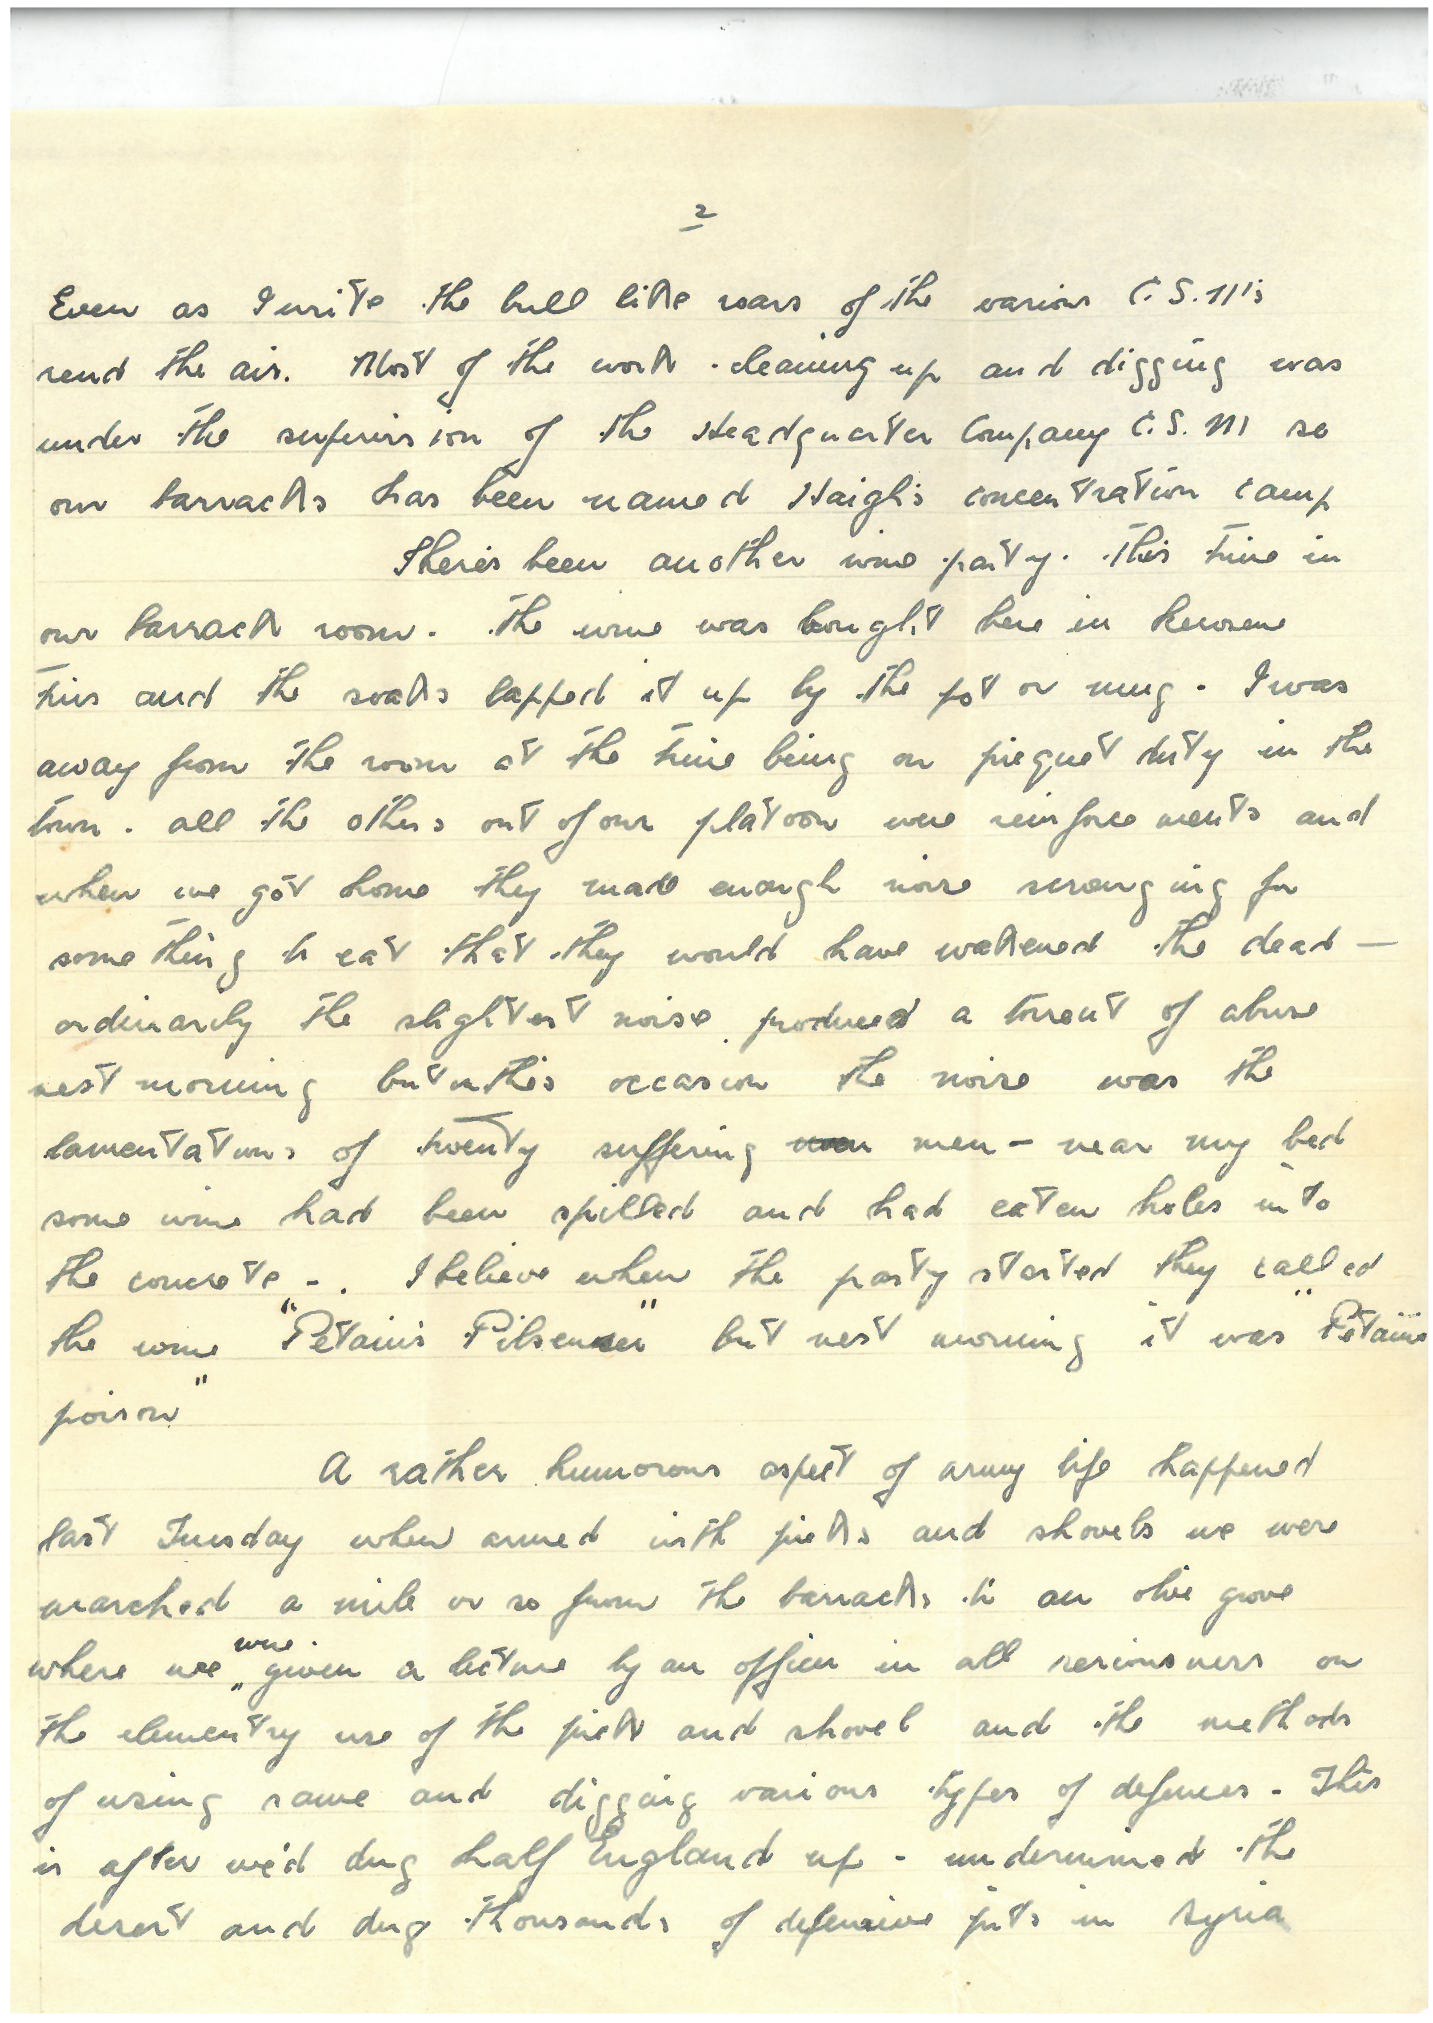 2
Even as I write the bull like roars of the various C.S.M's
rend the air. Most of the work - cleaning up and digging was
under the supervision of the Headquarter Company C.S.M so
our barracks has been named Haigh's concentration camp
There's been another wine party. This time in
our barrack room. The wine was bought here in kerosene
tins and the soaks lapped it up by the pot or mug. I was
away from the room at the time being on picquet duty in the
town. All the others out of our platoon were reinforcements and
when we got home they made enough noise scrounging for
something to eat that they would have wakened the dead —
ordinarily the slightest noise produced a torrent of abuse
next morning but on this occasion the noise was the
lamentations of twenty suffering men - near my bed
some wine had been spilled and had eaten holes into
the concrete -. I believe when the party started they called
the wine "Petain's Pilsener" but next morning it was "Petains
poison"
A rather humorous aspect of army life happened
last Tuesday when armed with picks and shovels we were
marched a mile or so from the barracks to an olive grove
where we were given a lecture by an officer in all seriousness on
the elementry use of the pick and shovel and the methods
of using same and digging various types of defences. This
is after we'd dug half England up - undermined the
desert and dug thousands of defensive pits in Syria